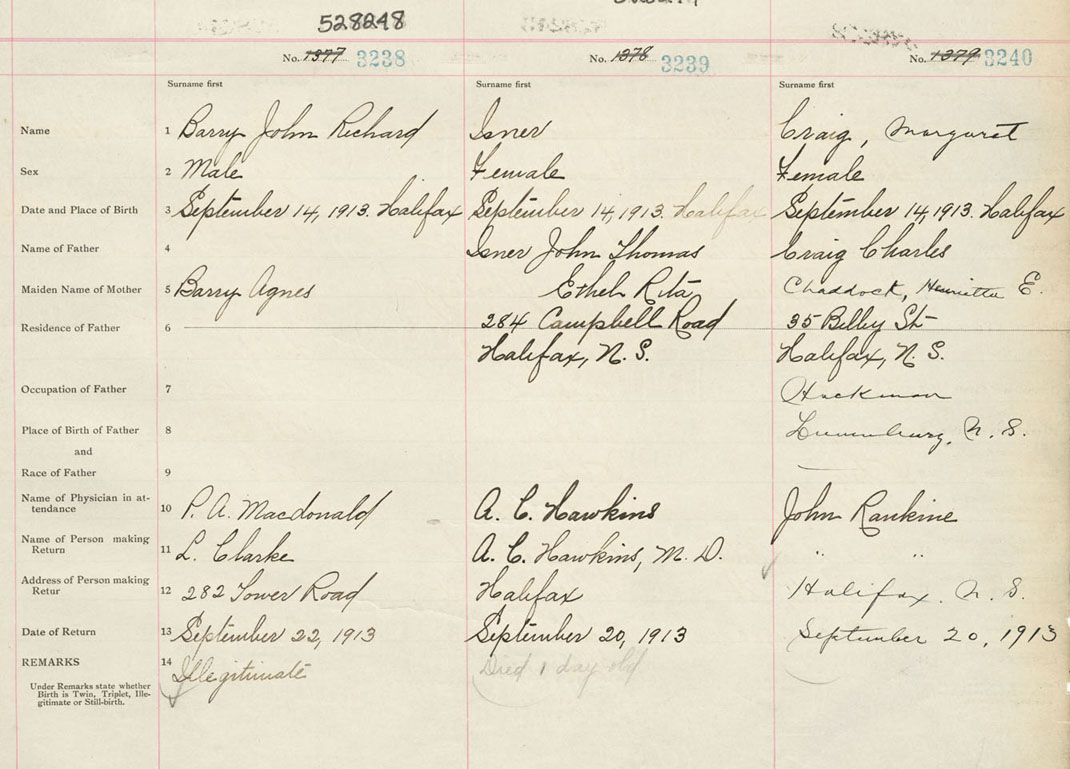 528248
No. 1377 3238 No. 1378 3239 No. 1379 3240
Surname first Surname first Surname first
Name 1 Barry John Richard Isner Craig, Margaret
Sex 2 Male Female Female
Date and Place of Birth 3 September 14, 1913. Halifax September 14, 1913. Halifax September 14, 1913. Halifax
Name of Father 4 Isner John Thomas Craig Charles
Maiden Name of Mother 5 Barry Agnes Ethel Rita Chaddock, Henrietta E.
Residence of Father 6 284 Campbell Road 35 Bilby St
Halifax, N. S. Halifax, N. S.
Occupation of Father 7 Huckman
Place of Birth of Father 8 Lunenburg, N. S.
and
Race of Father 9
Name of Physician in at-
tendance 10 P. A. Macdonald A. C. Hawkins John Rankine
Name of Person making
Return 11 L. Clarke A. C. Hawkins, M. D. " "
Address of Person making
Retur 12 282 Tower Road Halifax Halifax. N. S.
Date of Return 13 September 22, 1913 September 20, 1913 September 20, 1913
REMARKS 14 Illegitimate Died 1 day old
Under Remarks state whether
Birth is Twin, Triplet, Ille-
gitimate or Still-birth.